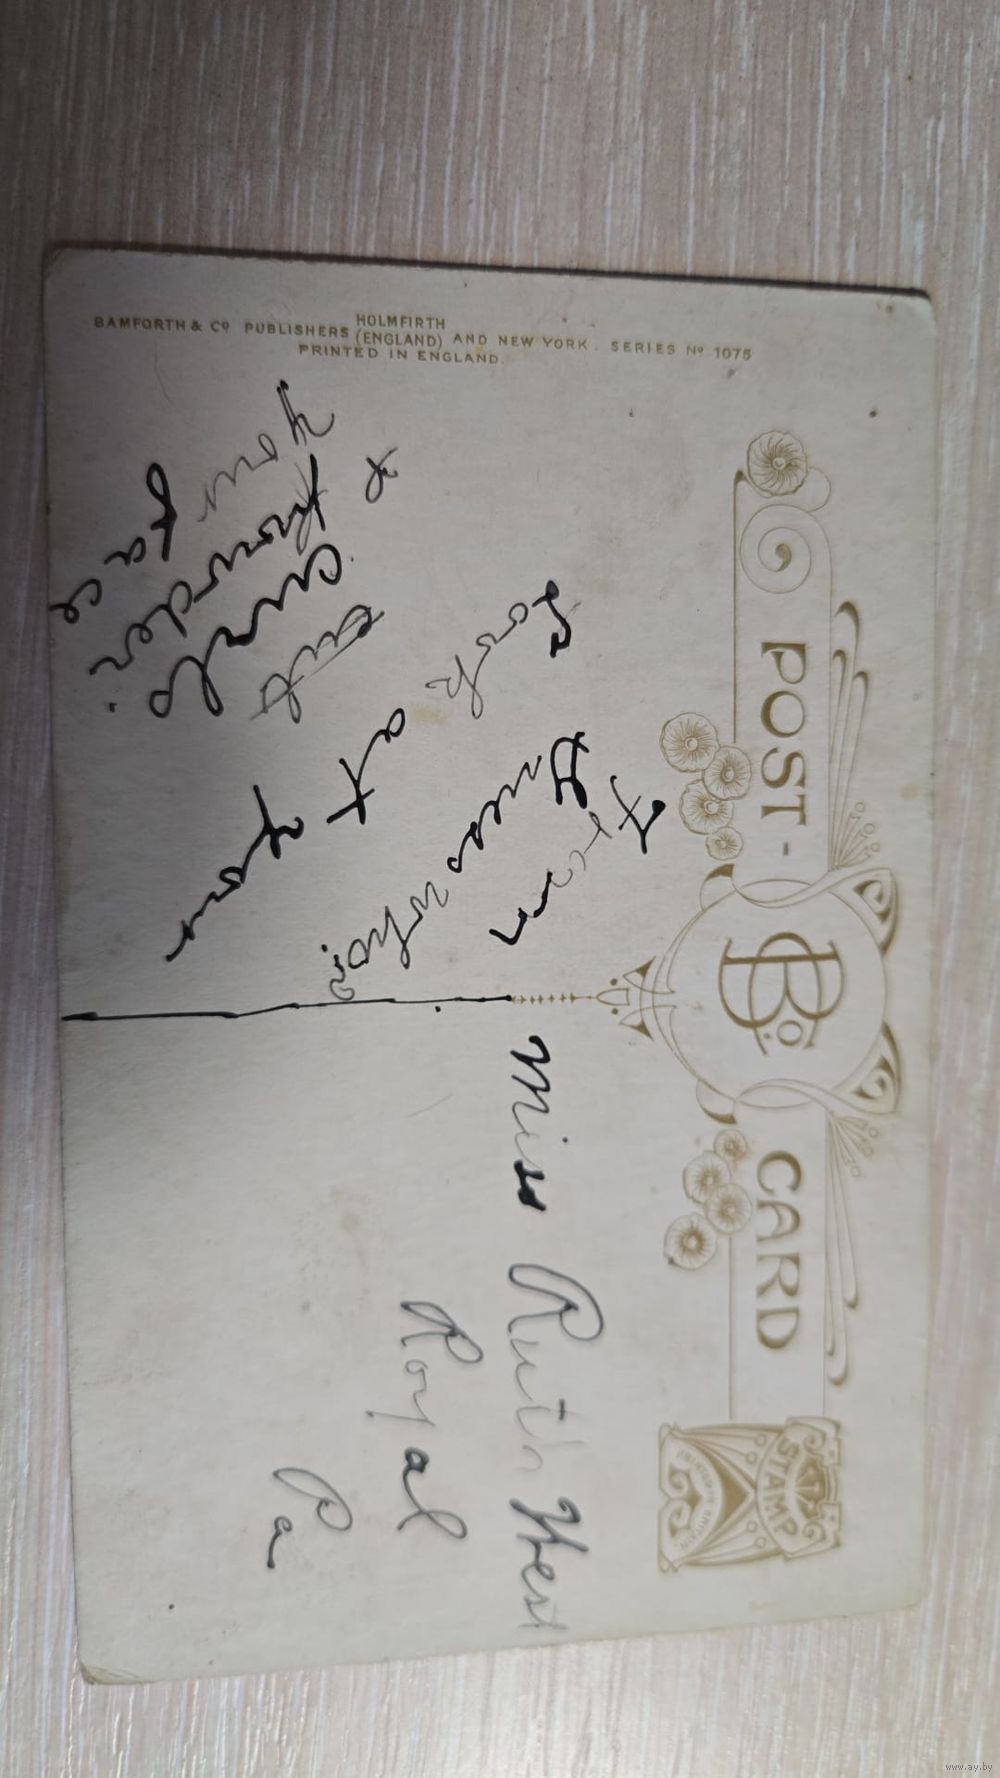 POST-CARD
B & Co
STAMP
From
Guess who.
Look at your
cut
curls
&
Powder.
your
face
Miss Ruth Hess
Royal
Pa
BAMFORTH & Co PUBLISHERS HOLMFIRTH (ENGLAND) AND NEW YORK. SERIES No 1075
PRINTED IN ENGLAND.
www.ay.by